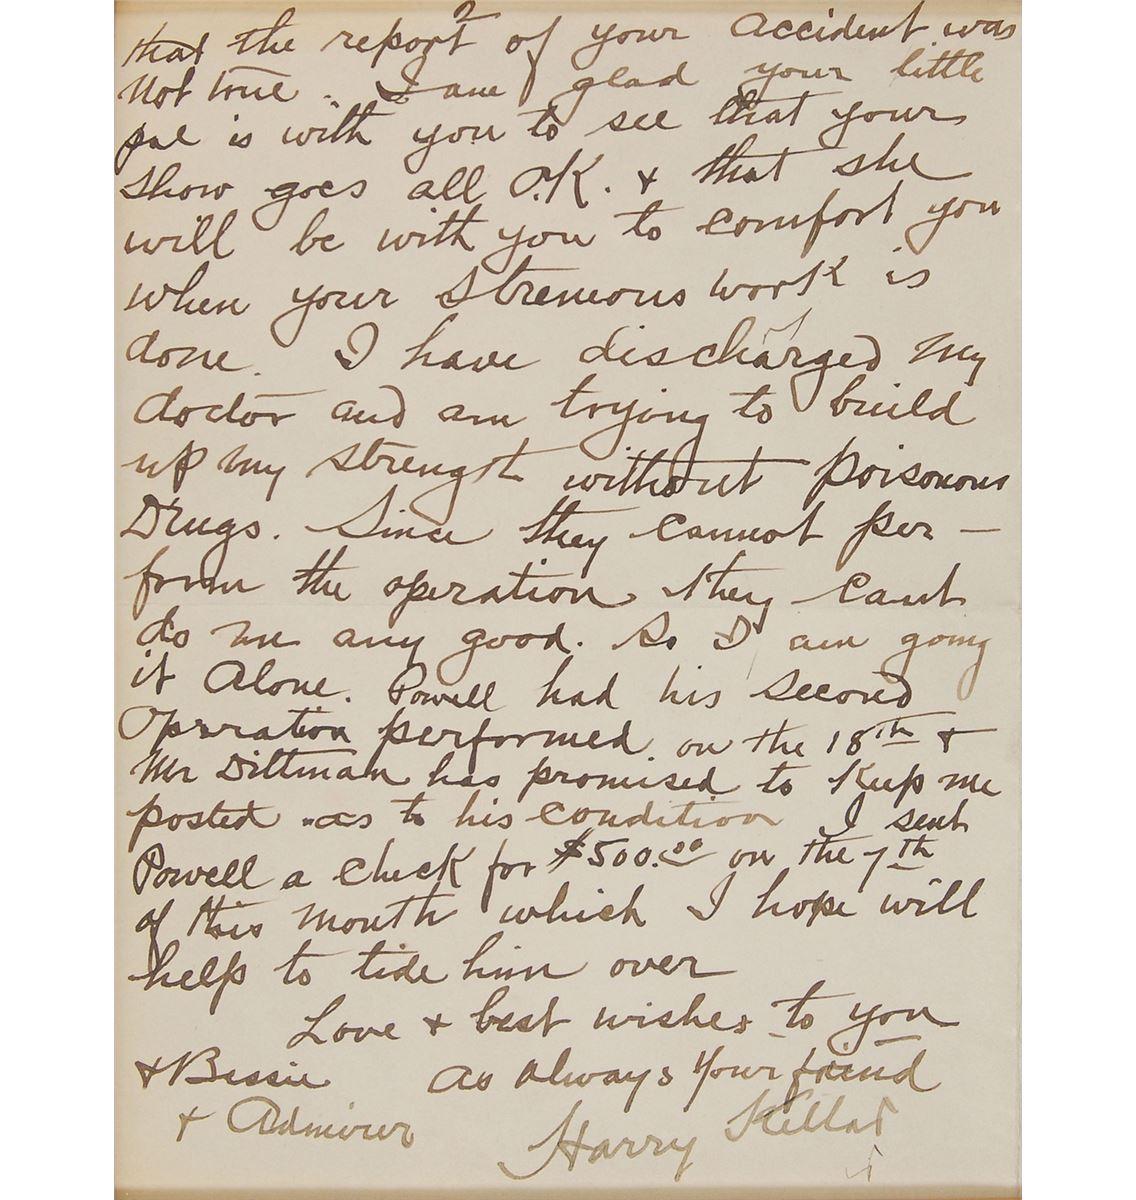 that the report of your accident was
not true. I am glad your little
pal is with you to see that your
show goes all O.K. & that she
will be with you to comfort you
when your strenuous work is
done. I have discharged my
doctor and am trying to build
up my strength without poisonous
Drugs. Since they cannot per-
form the operation they cant
do me any good. So I am going
it Alone. Powell had his second
Operation performed on the 18th &
Mr Dittman has promised to Keep me
posted as to his condition I sent
Powell a check for $500.00 on the 7th
of this month which I hope will
help to tide him over
Love & best wishes to you
& Bessie as always Your friend
& Admirer
Harry Kellar